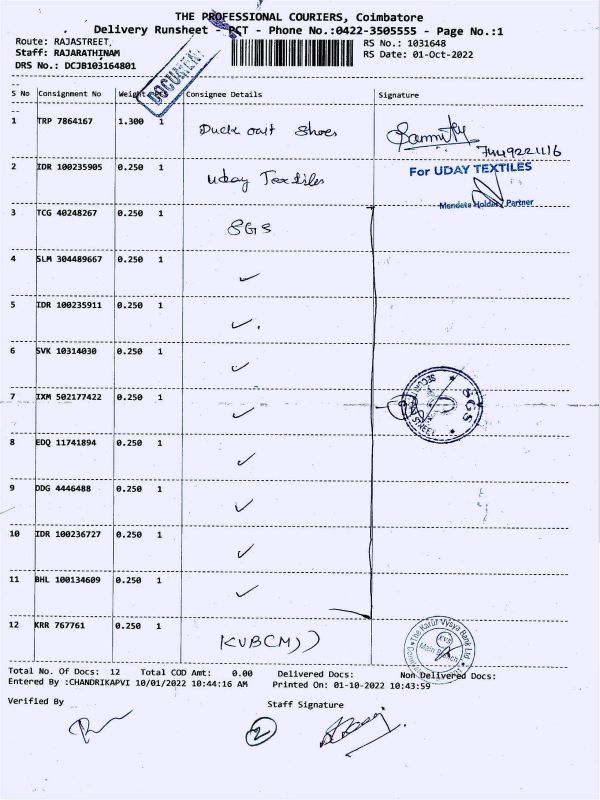 THE PROFESSIONAL COURIERS, Coimbatore
Delivery Runsheet - PCT - Phone No.:0422-3505555 - Page No.:1
Route: RAJASTREET,
RS No.: 1031648
Staff: RAJARATHINAM
RS Date: 01-Oct-2022
DRS No.: DCJB103164801
DOCUMENT
S No Consignment No Weight PCS Consignee Details Signature
1 TRP 7864167 1.300 1 Duck oast Shoes
7449221116
2 IDR 100235905 0.250 1 Uday Textiles
For UDAY TEXTILES
Mandate Holder / Partner
3 TCG 40248267 0.250 1 SGS
4 SLM 304489667 0.250 1 ✓
5 IDR 100235911 0.250 1 ✓
6 SVK 10314030 0.250 1 ✓
7 IXM 502177422 0.250 1 ✓
SGS
8 EDQ 11741894 0.250 1 ✓
9 DDG 4446488 0.250 1 ✓
10 IDR 100236727 0.250 1 ✓
11 BHL 100134609 0.250 1 ✓
12 KRR 767761 0.250 1 KVB(M))
The Karur Vysya Bank Ltd
KVB
Main Branch
Total No. Of Docs: 12 Total COD Amt: 0.00 Delivered Docs: Non Delivered Docs:
Entered By :CHANDRIKAPVI 10/01/2022 10:44:16 AM Printed On: 01-10-2022 10:43:59
Verified By Staff Signature
2